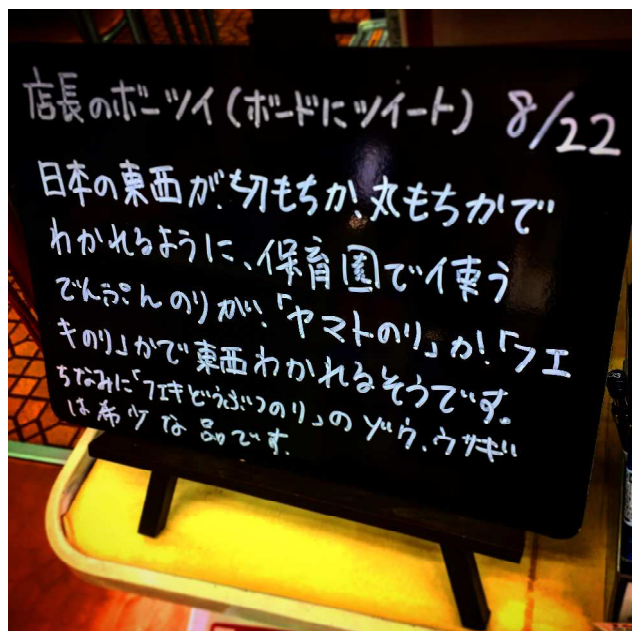 店長のボーツイ(ボードにツイート) 8/22
日本の東西が、切もちか、丸もちかで
わかれるように、保育園で使う
でんぷんのりが、「ヤマトのり」か、「フエ
キのり」かで東西わかれるそうです。
ちなみに「フエキどうぶつのり」のゾウ、ウサギ
は希少な品です。